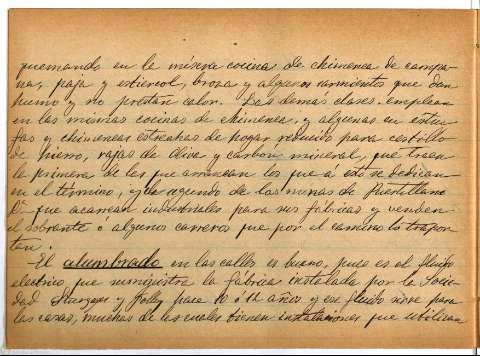 quemando en la mísera cocina de chimenea de campa-
na, paja y estiercol, broza y algunos sarmientos que dan
humo y no prestan calor. Las demas clases, emplean
en las mismas cocinas de chimenea, y algunas en estu-
fas y chimeneas estrechas de hogar reducido para cestillo
de hierro, rajas de olivo y carbón mineral, que traen
la primera de las que arrancan los que a esto se dedican
en el término, y la segunda de las minas de Puertollano
que acarrean industriales para sus fábricas y venden
el sobrante ó algunos carreros que por el camino lo trapor-
tan.
El alumbrado en las calles es bueno, pues es el fluido
electrico que suministra la fábrica instalada por la Socie-
dad y hace 10 u 11 años y ese fluido sirve para
las casas, muchas de las cuales tienen instalaciones que utilizan